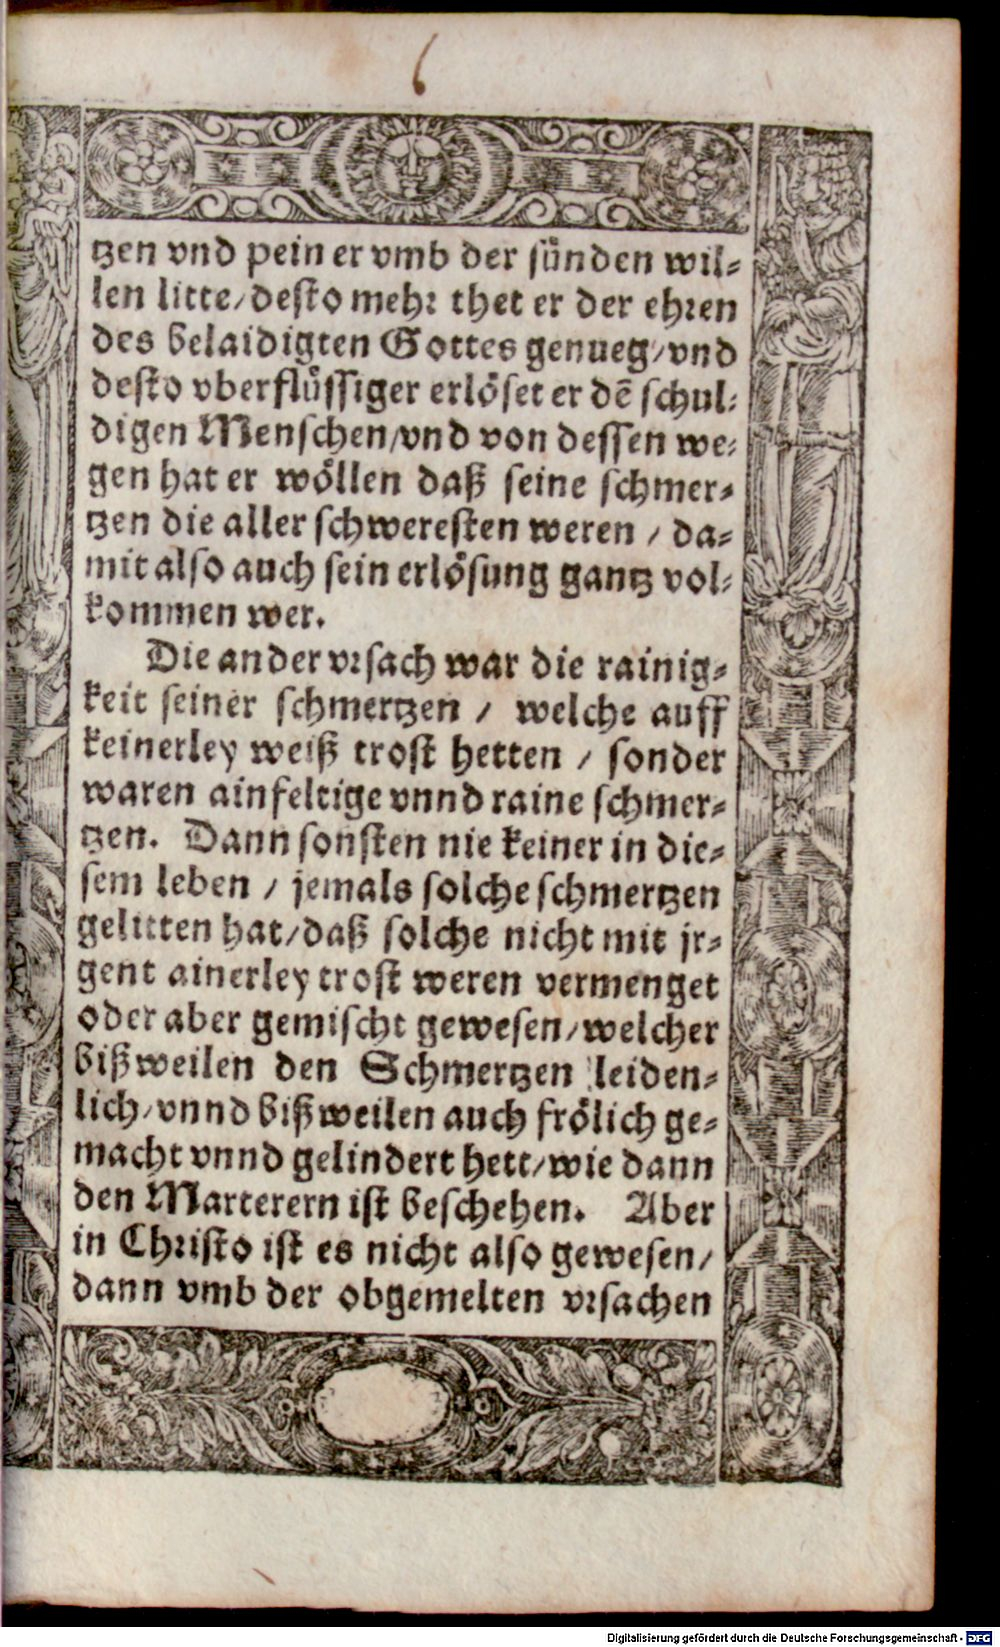 6
tzen vnd pein er vmb der sünden wil⸗
len litte/ desto mehr thet er der ehren
des belaidigten Gottes genueg/ vnd
desto vberflüssiger erlöset er dē schul⸗
digen Menschen/ vnd von dessen we⸗
gen hat er wöllen daß seine schmer⸗
tzen die aller schweresten weren / da⸗
mit also auch sein erlösung gantz vol⸗
kommen wer.
Die ander vrsach war die rainig⸗
keit seiner schmertzen / welche auff
keinerley weiß trost hetten / sonder
waren ainfeltige vnnd raine schmer⸗
tzen. Dann sonsten nie keiner in die⸗
sem leben / jemals solche schmertzen
gelitten hat/ daß solche nicht mit jr⸗
gent ainerley trost weren vermenget
oder aber gemischt gewesen/ welcher
bißweilen den Schmertzen leiden⸗
lich/ vnnd bißweilen auch frölich ge⸗
macht vnnd gelindert hett/ wie dann
den Marterern ist beschehen. Aber
in Christo ist es nicht also gewesen/
dann vmb der obgemelten vrsachen
Digitalisierung gefördert durch die Deutsche Forschungsgemeinschaft - DFG